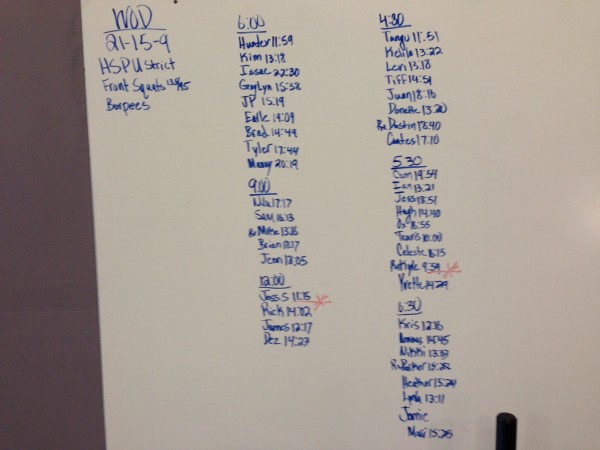 WOD
21-15-9
HSPU Strict
Front Squats 135/95
Burpees
6:00
Hunter 11:59
Kim 13:18
Isaac 22:30
GrayLyn 15:38
JP 15:19
Earle 14:09
Brad 14:49
Tyler 17:44
Manny 20:19
9:00
17:17
Sam 16:13
Rx Mike 13:26
Brian 13:17
Jenn 12:05
12:00
Jess S 11:15
Rick 14:02
James 12:17
Dez 14:27
4:30
Tanya 11:51
Kelila 13:22
Levi 13:18
Tiff 14:51
Juan 18:16
Donette 13:20
Rx Dustin 18:40
Coates 17:10
5:30
Cam 19:54
Ian 13:21
Jess 18:51
Hugh 14:40
16:55
Travis 10:00
Celeste 16:15
Rx Kyle 9:59
Yvette 14:29
6:30
Kris 12:16
14:45
Nikki 13:19
Rx Parker 15:22
Heather 13:24
Lynda 13:11
Jamie
Maxi 15:25